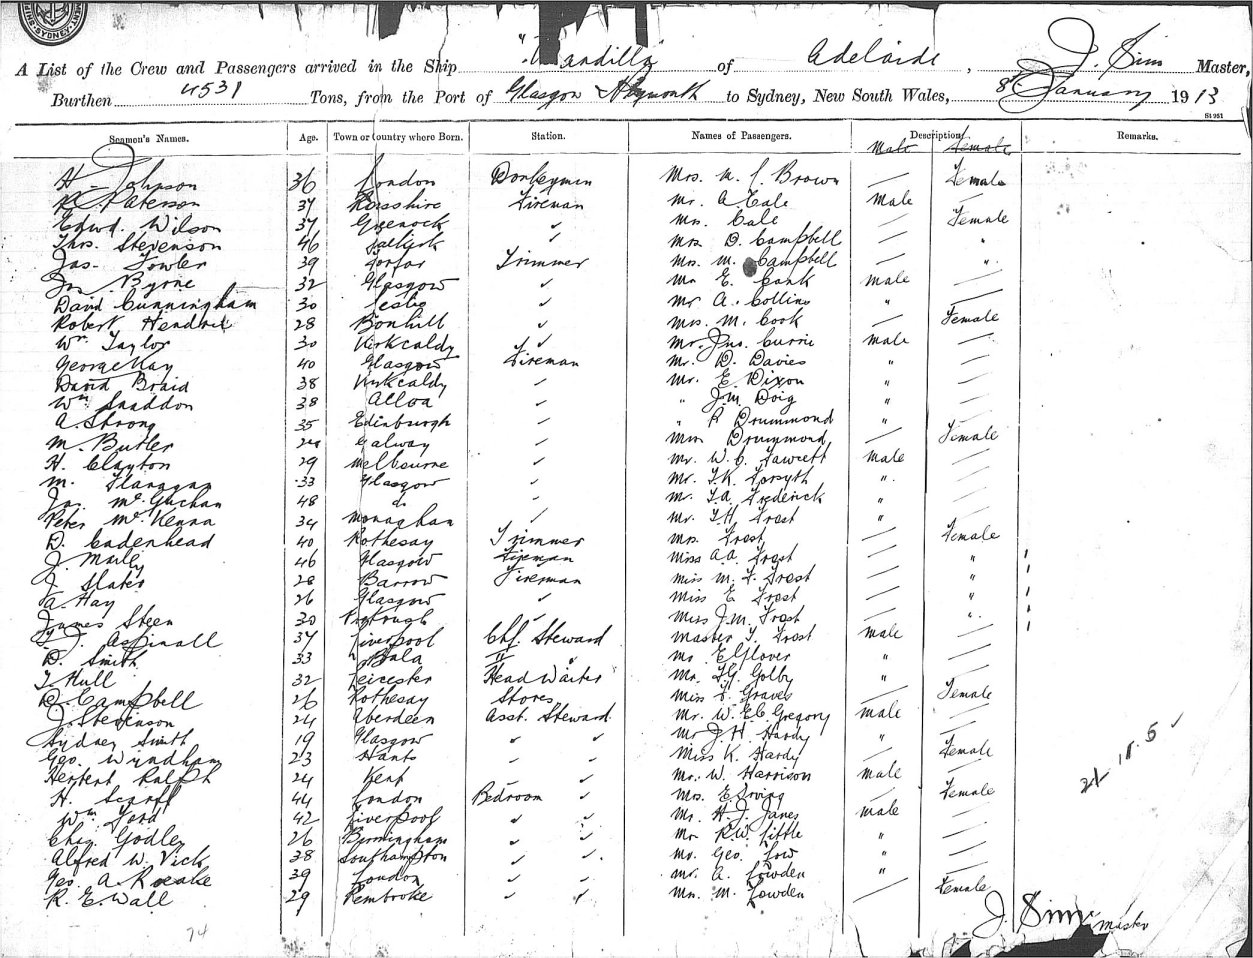 SYDNEY
"Wandilla" of Adelaide, J. Sim Master,
A List of the Crew and Passengers arrived in the Ship
Burthen 4531 Tons, from the Port of Glasgow & Plymouth to Sydney, New South Wales, 8th January 1913
St 951
Seamen's Names. Age. Town or Country where Born. Station. Names of Passengers. Description Remarks.
Male Female
H. Johnson 36 London Donkeyman Mrs. M. L. Brown — Female
Paterson 37 Rossshire Fireman Mr. A Cale Male —
Edwd. Wilson 37 Greenock ✓ Mrs. Cale — Female
Thos. Stevenson 46 Falkirk ✓ Mrs D. Campbell — "
Jas. Fowler 39 Forfar Trimmer Mrs. M. Campbell — "
Jn Byrne 32 Glasgow ✓ Mr E. Cank Male —
David Cunningham 30 Leslie ✓ Mr A. Collins " —
Robert Hendrie 28 Bonhill ✓ Mrs. M. Cook — Female
Wm. Taylor 30 Kirkcaldy ✓ Mr. Jno. Currie Male —
George Kay 40 Glasgow Fireman Mr. D. Davies " —
David Braid 38 Kirkcaldy ✓ Mr. E. Dixon " —
Wm Snaddon 38 Alloa ✓ " J.M. Doig " —
A Strong 35 Edinburgh ✓ " R Drummond " —
M. Butler 29 Galway ✓ Drummond — Female
H. Clayton 29 Melbourne ✓ Mr. W. C. Fawcett Male —
M. Flanagan 33 Glasgow ✓ Mr. T.K. Forsyth " —
Jas. McGuchan 48 do ✓ Mr. T.A. Frederick " —
Peter McKenna 34 Monaghan ✓ Mr. T.H. Frost " —
D. Cadenhead 40 Rothesay Trimmer Mrs. Frost — Female
J. Mailey 46 Glasgow Fireman Miss A.A. Frost — "
J Slater 28 Barrow Fireman Miss M. F. Frost — "
A. Hay 26 Glasgow ✓ Miss E Frost — "
James Steen 30 ✓ Miss J.M. Frost — "
T. J. Aspinall 37 Liverpool Chf. Steward Master T. Frost Male —
D. Smith 33 Bala " " Mr E Glover " —
T Hull 32 Leicester Head Waiter Mr. T.G. Golby " —
D. Campbell 26 Rothesay Stores Miss L. Graves — Female
J. Stevenson 24 Aberdeen Asst. Steward Mr. W. E. C. Gregory Male —
Sydney Smith 19 Glasgow ✓ ✓ Mr J. H. Hardy " —
Geo. Wyndham 23 Hants ✓ ✓ Miss K. Hardy — Female
Herbert Ralph 24 Kent ✓ Mr. W. Harrison Male —
H. Scarff 44 London Bedroom ✓ Mrs. E Irving — Female
Wm Ford 42 Liverpool ✓ ✓ Mr. H. J. Janes Male —
Chas Godley 26 Birmingham ✓ ✓ Mr R.W. Little " —
Alfred W. Vick 38 Southampton ✓ ✓ Mr. Geo. Low " —
Geo. A. Roake 39 London ✓ ✓ Mr. A. Lowden " —
R. E. Wall 29 Pembroke ✓ ✓ M. Lowden — Female
J. Sim Master
74